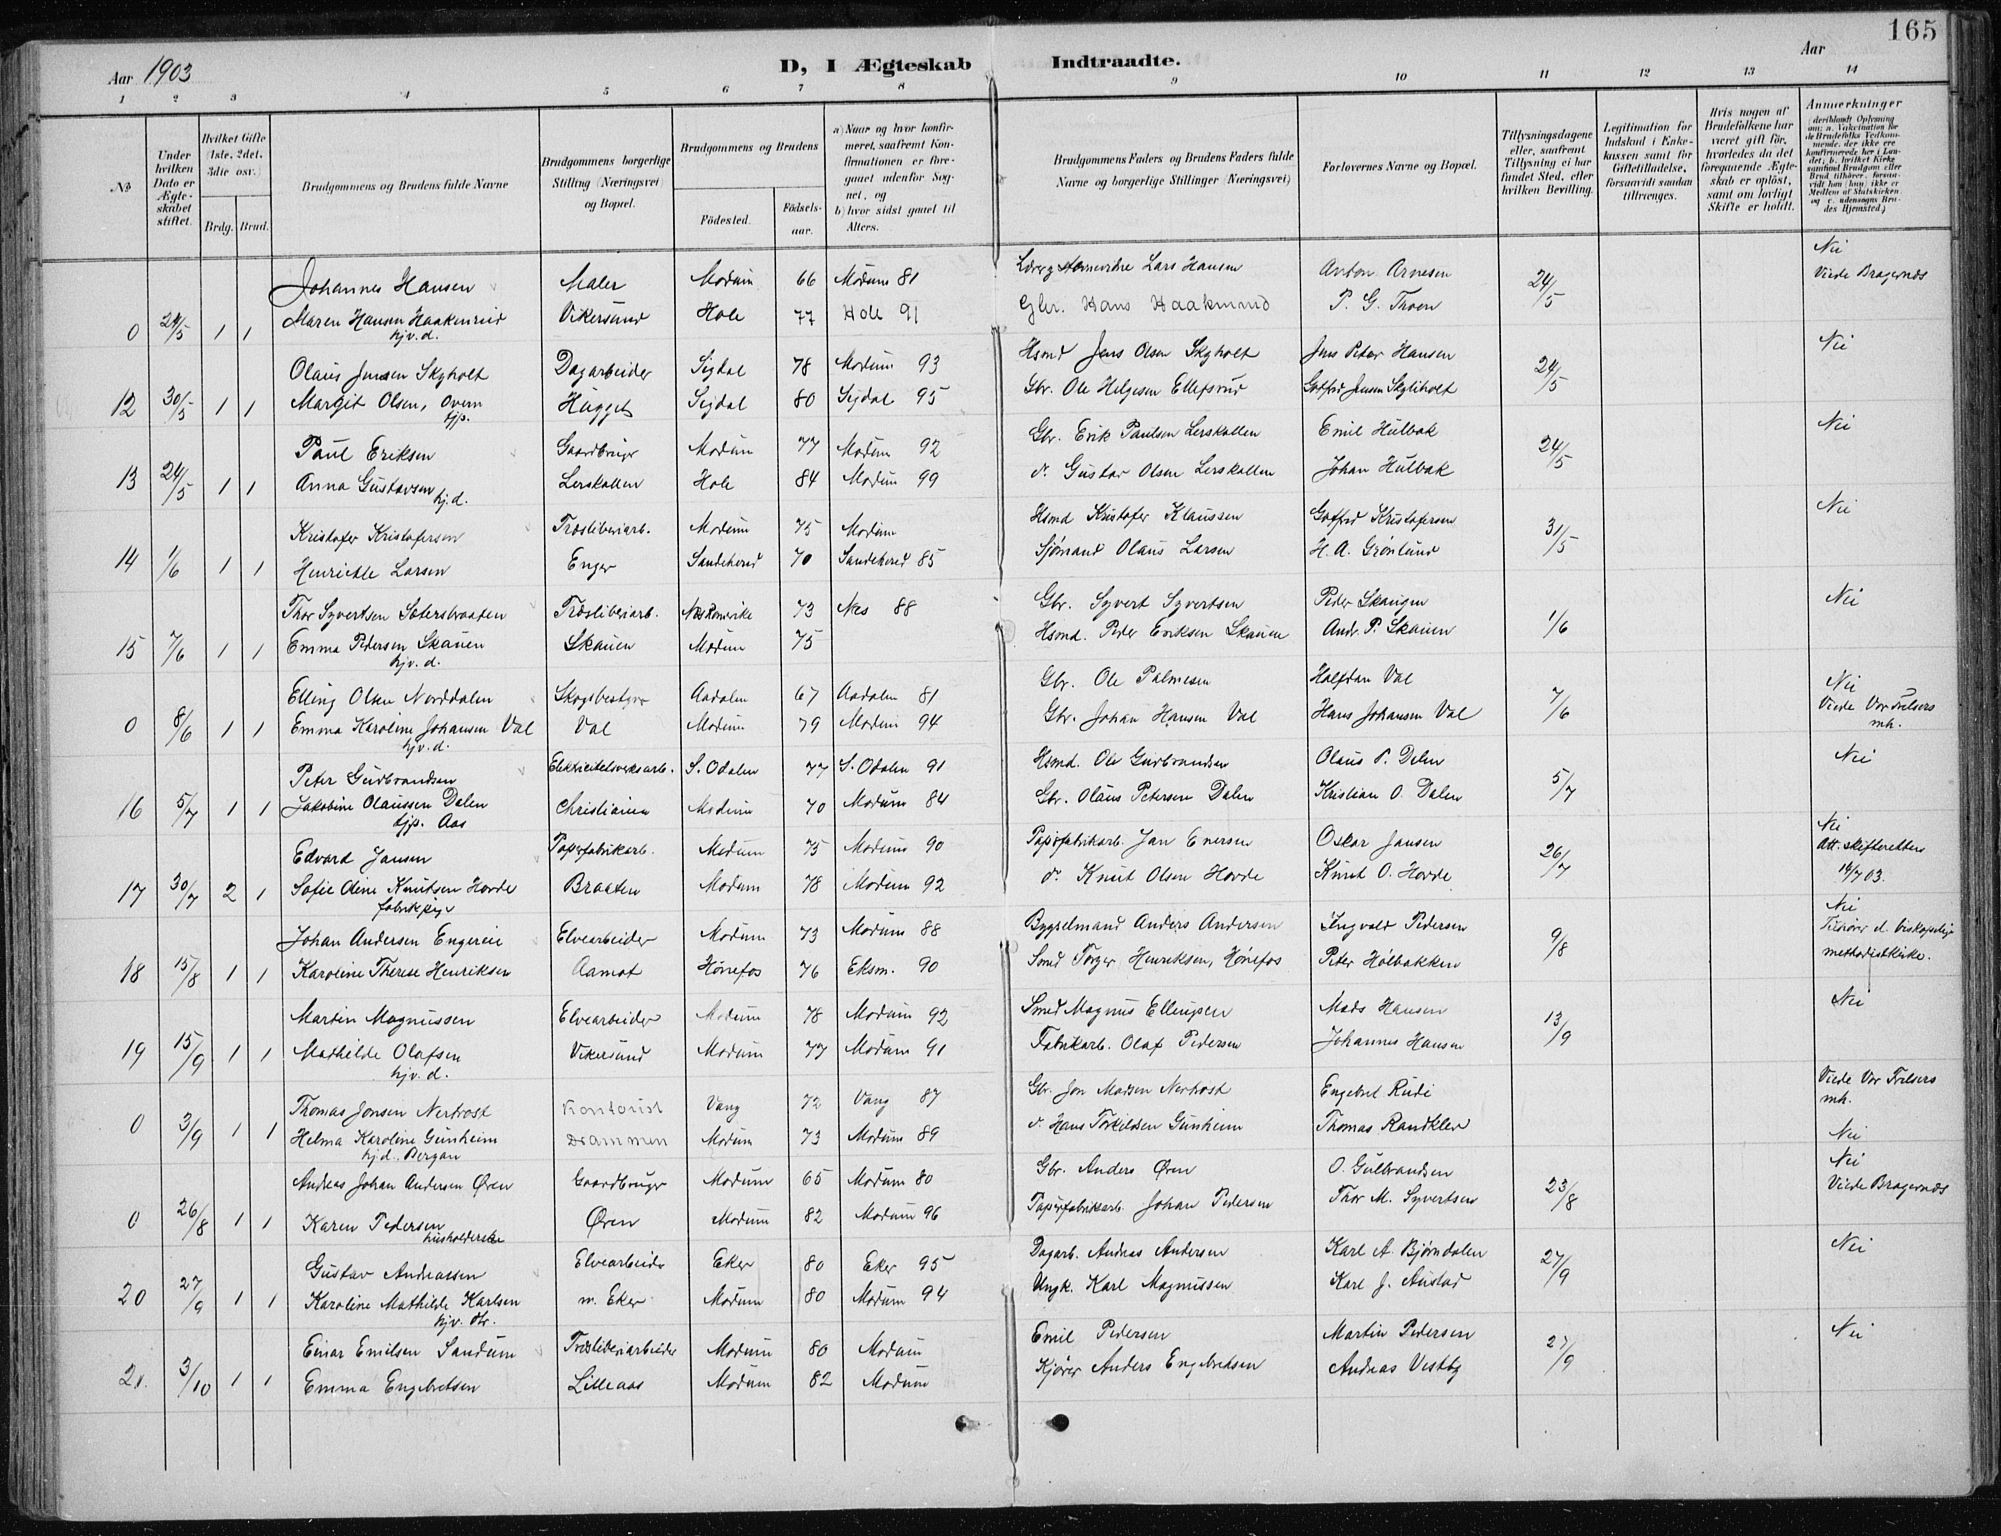 165
Aar 1903
D, I Ægteskab Indtraadte.
Aar
1 2 3 4 5 6 7 8 9 10 11 12 13 14
No
Under hvilken Dato er Ægteskabet stiftet.
Hvilket Gifte (1ste, 2det, 3die osv.)
Brdg. Brud.
Brudgommens og Brudens fulde Navne
Brudgommens borgerlige Stilling (Næringsvei) og Bopæl.
Brudgommens og Brudens
Födested.
Födselsaar.
a) Naar og hvor konfirmeret, saafremt Konfirmationen er foregaaet udenfor Sognet, og
b) hvor sidst gaaet til Alters.
Brudgommens Faders og Brudens Faders fulde Navne og borgerlige Stillinger (Næringsvei)
Forlovernes Navne og Bopæl.
Tillysningsdagene eller, saafremt Tillysning ei har fundet Sted, efter hvilken Bevilling.
Legitimation for Indskud i Enkekassen samt for Giftetilladelse, forsaavidt saadan tiltrænges.
Hvis nogen af Brudefolkene har været gift för, hvorledes da det foregaaende Ægteskab er oplöst, samt om lovligt Skifte er holdt.
Anmerkninger (deriblandt Oplysning om: a. Vakcination for de Brudefolks Vedkommende, der ikke ere konfirmerede her i Landet; b. hvilket Kirkesamfund Brudgom eller Brud tilhörer, forsaavidt han (hun) ikke er Medlem af Statskirken, og c. udensogns Brudes Hjemsted.)
Johannes Hansen Maler Modum 66 Modum 81 Lars Hansen Anton Arnesen 24/5 Nei
0 24/5 1 1 Maren Hansen Haakenrud Vikersund Hole 77 Hole 91 Gbr. Hans Haakenrud P. G. Thoen Viede Bragernæs
hjv. d.
Olaus Jensen Skyholt Dagarbeider Sigdal 78 Modum 93 Hsmd Jens Olsen Skyholt Jens Peter Hansen 24/5 Nei
12 30/5 1 1 Margit Olsen, Overn Hugget Sigdal 80 Sigdal 95 Gbr. Ole Helgesen Ellefsrud Gotfred Jensen Skyliholt
tjp.
Paul Eriksen Gaardbruger Modum 77 Modum 92 Gbr. Erik Paulsen Lerskallen Emil Hulbak 24/5 Nei
13 24/5 1 1 Anna Gustavsen Lerskallen Hole 84 Modum 99 do Gustav Olsen Lerskallen Johan Hulbak
hj. d.
Kristofer Kristofersen Træsliberiarb. Modum 75 Modum Hsmd Kristofer Klaussen Gotfred Kristofersen 31/5 Nei
14 1/6 1 1 Henriette Larsen Enger Sandeherred 70 Sandeherred 85 Sjømand Olaus Larsen H. A. Grønlund
Thor Syvertsen Sætersbraaten Træsliberiarb. 73 Næs 88 Gbr. Syvert Syvertsen Peder Skaugen 1/6 Nei
15 7/6 1 1 Emma Pedersen Skauen Skauen Modum 75 Hsmd. Peder Eriksen Skauen Andr. P. Skauen
hjv. d.
Elling Olsen Norddalen Skogsbestyrer Aadalen 67 Aadalen 81 Gbr. Ole Palmesen Halfdan Val 7/6 Nei
0 8/6 1 1 Emma Karoline Johansen Val Val Modum 79 Modum 94 Gbr. Johan Hansen Val Hans Johansen Val Viede Vor Frelsers mh.
hjv. d.
Peter Gudbrandsen Elektricitetsverksarb. S. Odalen 77 S. Odalen 91 Hsmd. Ole Gudbrandsen Olaus P. Dalen 5/7 Nei
16 5/7 1 1 Jakobine Olaussen Dalen Christiania Modum 70 Modum 84 Gbr. Olaus Petersen Dalen Kristian O. Dalen
tjp. Aas
Edvard Jansen Papirfabrikarb. Modum 75 Modum 90 Papirfabrikarb. Jan Enersen Oskar Jansen 26/7 Nei
17 30/7 2 1 Sofie Oline Knutsen Hovde Braaten Modum 78 Modum 92 do Knut Olsen Hovde Knut O. Hovde Att. skifteretten 14/7 03.
fabrikpige
Johan Andersen Engereie Elvearbeider Modum 73 Modum 88 Bygselmand Anders Andersen Ingvald Pedersen 9/8 Nei
18 15/8 1 1 Karoline Therese Henriksen Aamot Hønefos 76 Eksm. 90 Smed Torger Henriksen, Hønefos Peter Hølbakken Tilhører d. biskopelige methodistkirke.
Martin Magnussen Elvearbeider Modum 78 Modum 92 Smed Magnus Ellingsen Mads Hansen 13/9 Nei
19 15/9 1 1 Mathilde Olafsen Vikersund Modum 77 Modum 91 Fabrikarb. Olaf Pedersen Johannes Hansen
hjv. d.
Thomas Jonsen Nertrost Kontorist Vang 72 Vang 87 Gbr. Jon Madsen Nertrost Engebret Rudi Viede Vor Frelsers mh.
0 3/9 1 1 Helma Karoline Gunheim Drammen Modum 73 Modum 89 do Hans Torkilsen Gunheim Thomas Randklev Nei
hj.d. Bergan
Andreas Johan Andersen Øren Gaardbruger Modum 65 Modum 80 Gbr. Anders Øren O. Gulbrandsen 23/8 Nei
0 26/8 1 1 Karen Pedersen Øren Modum 82 Modum 96 Papirfabrikarb. Johan Pedersen Thor M. Syvertsen Viede Bragernæs
husholderske
Gustav Andreassen Elvearbeider Eker 80 Eker 95 Dagarb. Andreas Andersen Karl A. Bjørndalen 27/9 Nei
20 27/9 1 1 Karoline Mathilde Karlsen n. Eker Modum 80 Modum 94 Ungk. Karl Magnussen Karl J. Austad
hjv. dtr.
Einar Emilsen Sandum Træsliberiarbeider Modum 80 Modum Emil Pedersen Martin Pedersen 27/9 Nei
21. 3/10 1 1 Emma Engebretsen Lilleaas Modum 82 Modum Kjører Anders Engebretsen Andreas Vestby